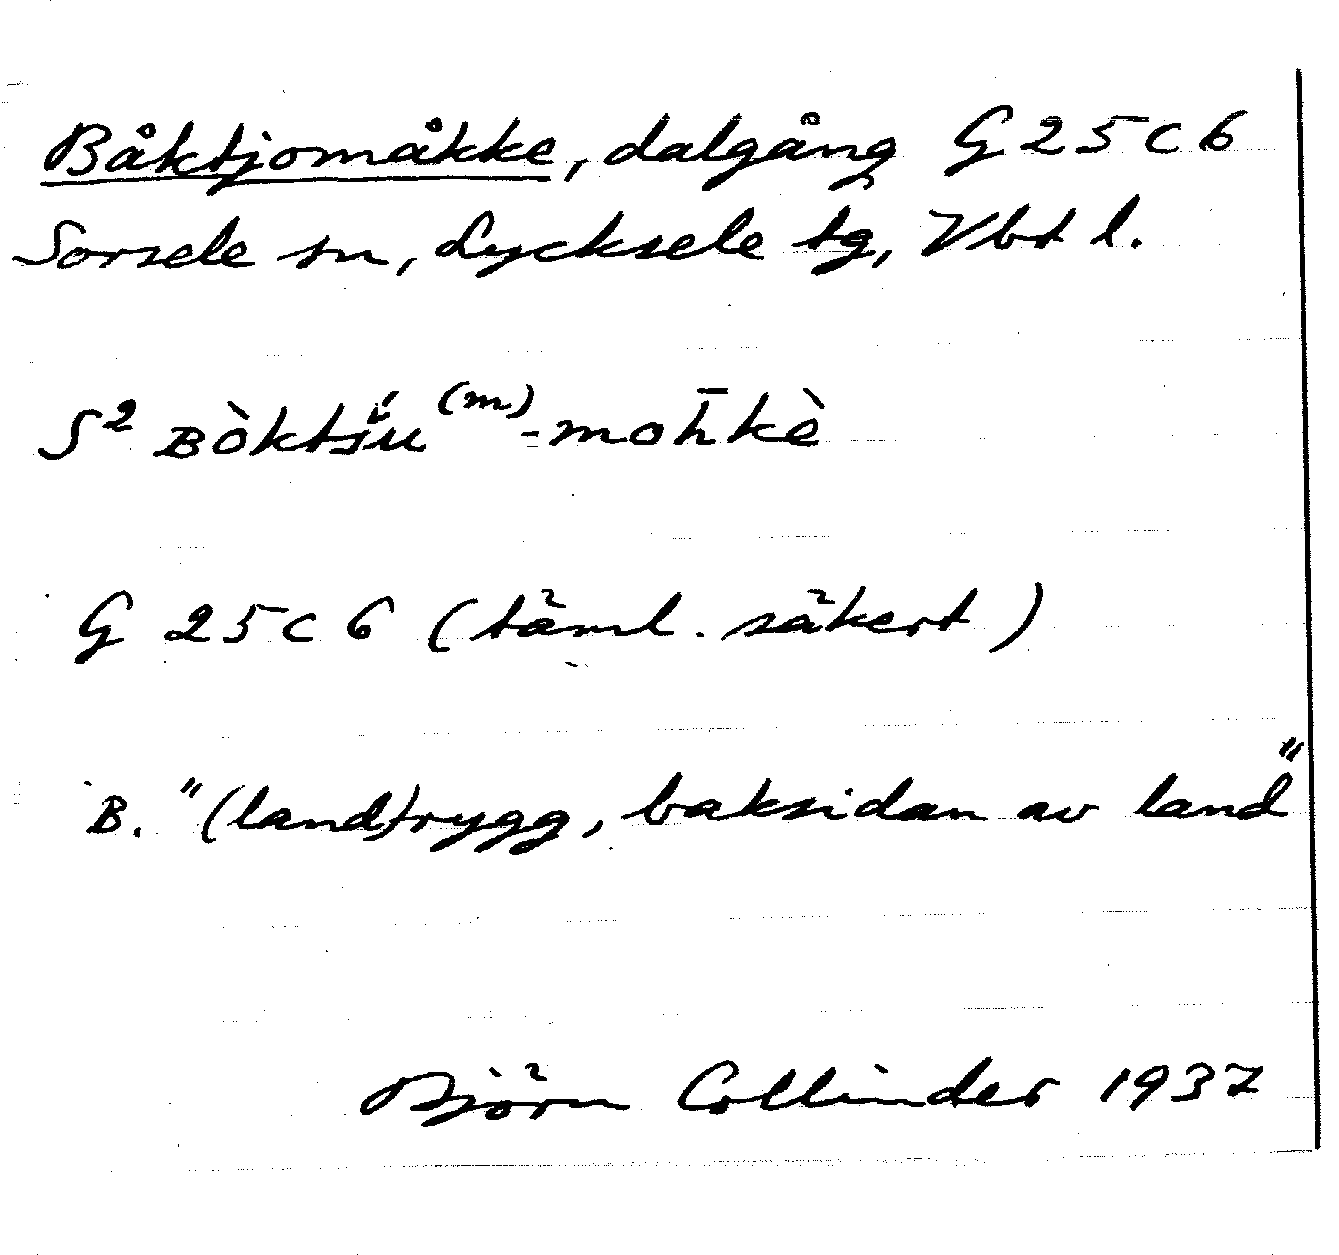 Båktjomåkke, dalgång G 25 C 6
Sorsele sn, Lycksele tg, Vbt l.
S² Bòktśü⁽ᵐ⁾-moh̄kè
G 25 C 6 (täml. säkert)
B. "(land)rygg, baksidan av land"
Björn Collinder 1937